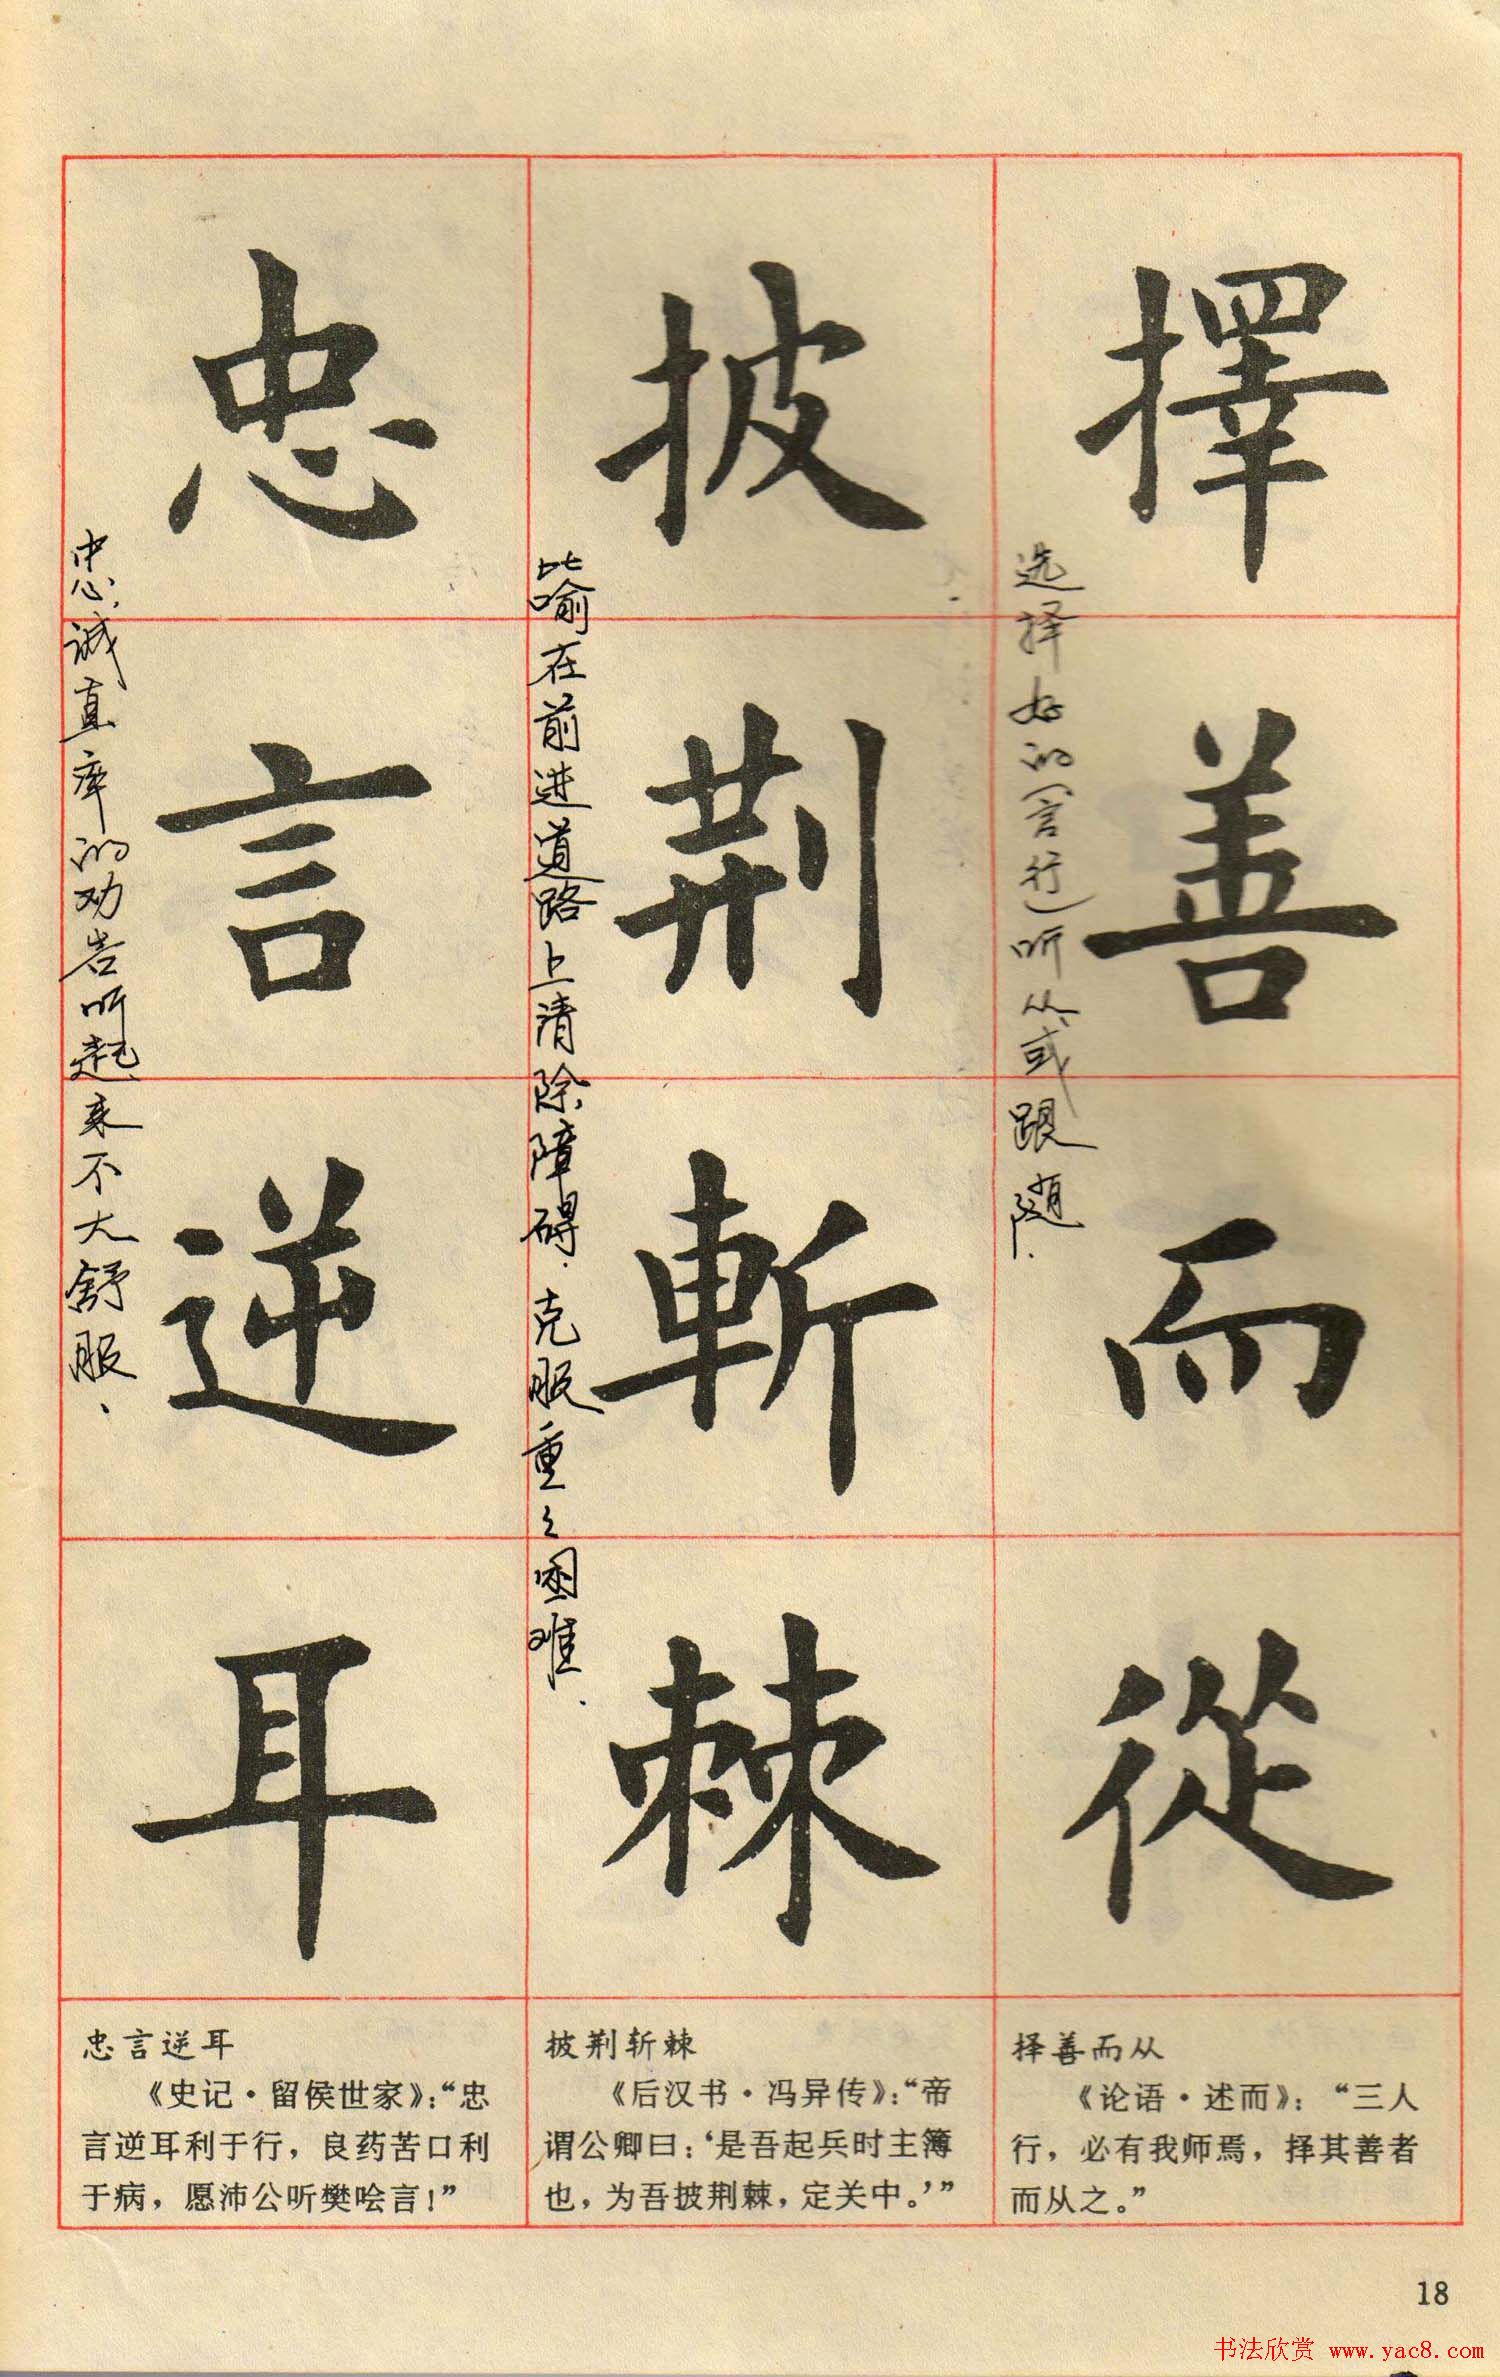 擇善而從
选择好的(言行)听从或跟随.
披荆斬棘
比喻在前进道路上清除障碍.克服重重困难.
忠言逆耳
忠心,诚直率的劝告听起来不大舒服.
择善而从
《论语·述而》：“三人
行，必有我师焉，择其善者
而从之。”
披荆斩棘
《后汉书·冯异传》：“帝
谓公卿曰：‘是吾起兵时主簿
也，为吾披荆棘，定关中。’”
忠言逆耳
《史记·留侯世家》：“忠
言逆耳利于行，良药苦口利
于病，愿沛公听樊哙言！”
18
书法欣赏 www.yac8.com